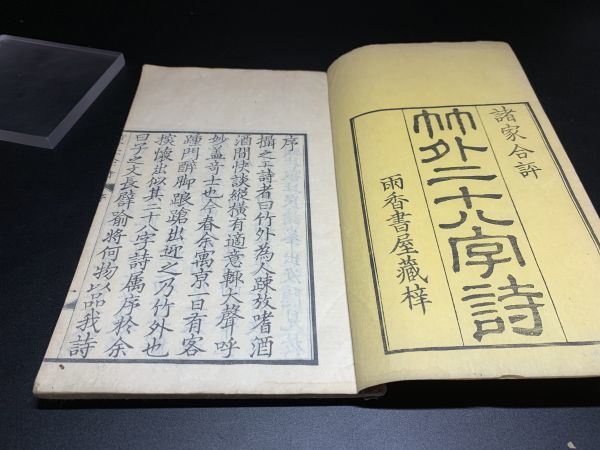 諸家合評
竹外二十八字詩
雨香書屋藏梓
序
攝之工詩者曰竹外為人疎放嗜酒
酒間快談縱橫有適意輙大聲呼
妙蓋奇士也今春余寓京一日有客
踵門醉脚踉蹌出迎之乃竹外也
探懷出似其二十八字詩属序於余
曰子之文長譬喻將何物以品我詩